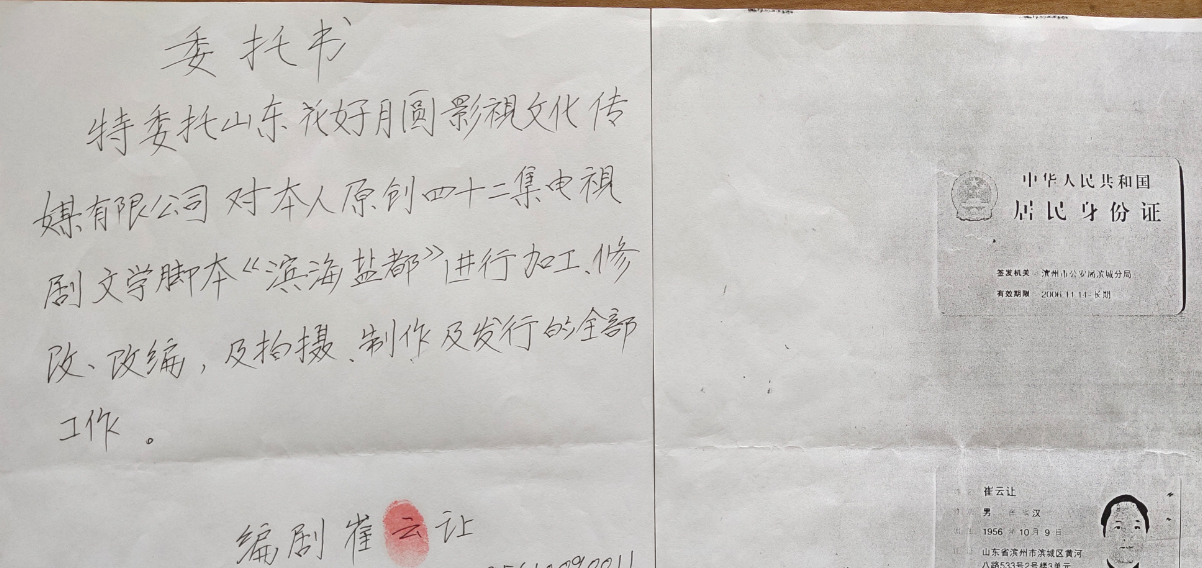 委托书
特委托山东花好月圆影視文化传
媒有限公司对本人原创四十二集电視
剧文学脚本《滨海盐都》进行加工、修
改、改编，及拍摄、制作及发行的全部
工作。
编剧崔云让
中华人民共和国
居民身份证
签发机关 滨州市公安局滨城分局
有效期限 2006.11.14-长期
崔云让
男 汉
1956 年 10 月 9 日
山东省滨州市滨城区黄河
八路533号2号楼3单元